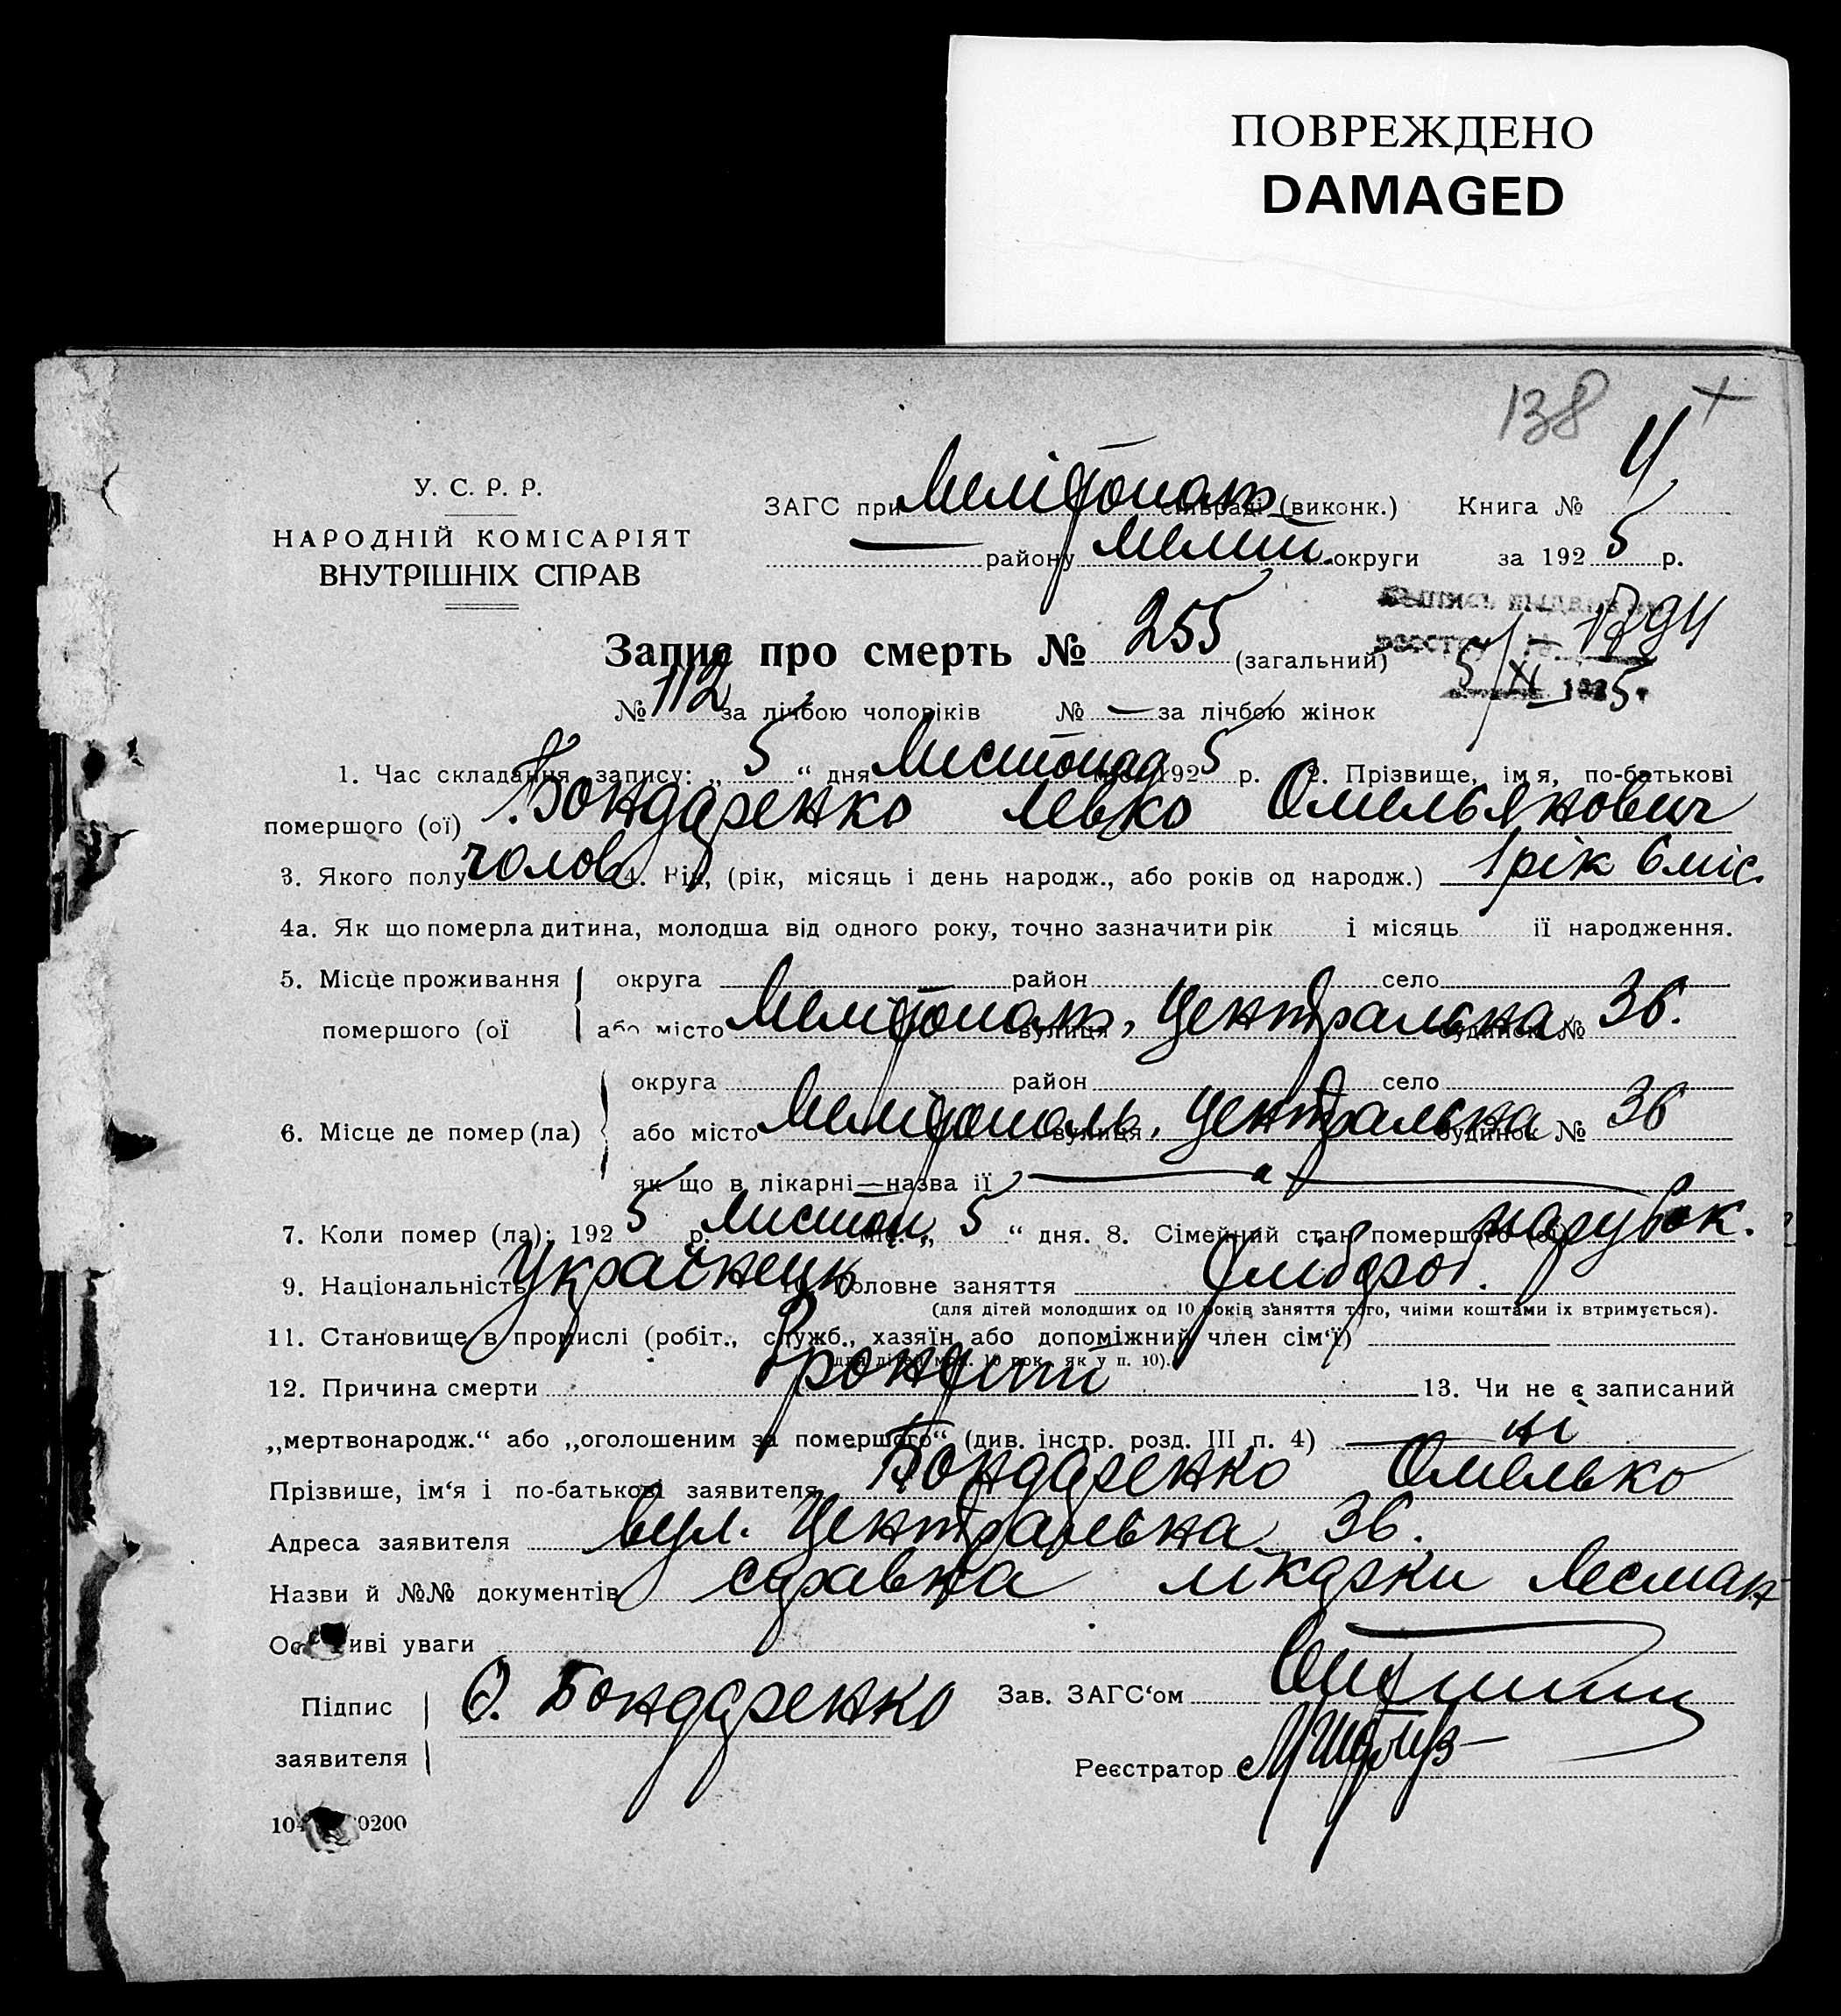 ПОВРЕЖДЕНО
DAMAGED
138 +
У. С. Р. Р.
НАРОДНІЙ КОМІСАРІЯТ
ВНУТРІШНІХ СПРАВ
ЗАГС при Мелітополь сільраді (виконк.) Книга № 4
— району Мелит. округи за 1925 р.
Запис про смерть № 255 (загальний)
5/XI 1925 г.
№ 112 за лічбою чоловіків № — за лічбою жінок
1. Час складання запису: „ 5 “ дня Листопад 1925 р. 2. Прізвище, імя, по-батькові
помершого (ої) Бондаренко Левко Омельянович
3. Якого полу чолов 4. Вік, (рік, місяць і день народж., або років од народж.) 1 рік 6 міс.
4а. Як що померла дитина, молодша від одного року, точно зазначити рік і місяць її народження.
5. Місце проживання округа район село
помершого (ої або місто Мелітополь, вулиця Центральна будинок № 36.
округа район село
6. Місце де помер (ла) або місто Мелітополь, вулиця Центральна будинок № 36
як що в лікарні—назва її —
7. Коли помер (ла): 1925 р. Листоп. міс. „ 5 “ дня. 8. Сімейний стан помершого (ої) парубок.
9. Національність Українець 10. Головне заняття
(для дітей молодших од 10 років заняття того, чиїми коштами їх втримується).
11. Становище в промислі (робіт., служб., хазяїн або допоміжний член сім‘ї)
(для дітей мол. 10 рок., як у п. 10).
12. Причина смерти Бронхит 13. Чи не є записаний
„мертвонародж.“ або „оголошеним за помершого“ (див. інстр. розд. III п. 4) ні
Прізвише, ім‘я і по-батькові заявителя Бондаренко Омелько
Адреса заявителя вул. Центральна 36.
Назви й №№ документів справка лікарки
Ос иві уваги
Підпис О. Бондаренко Зав. ЗАГС‘ом
заявителя
Реєстратор
10 0200